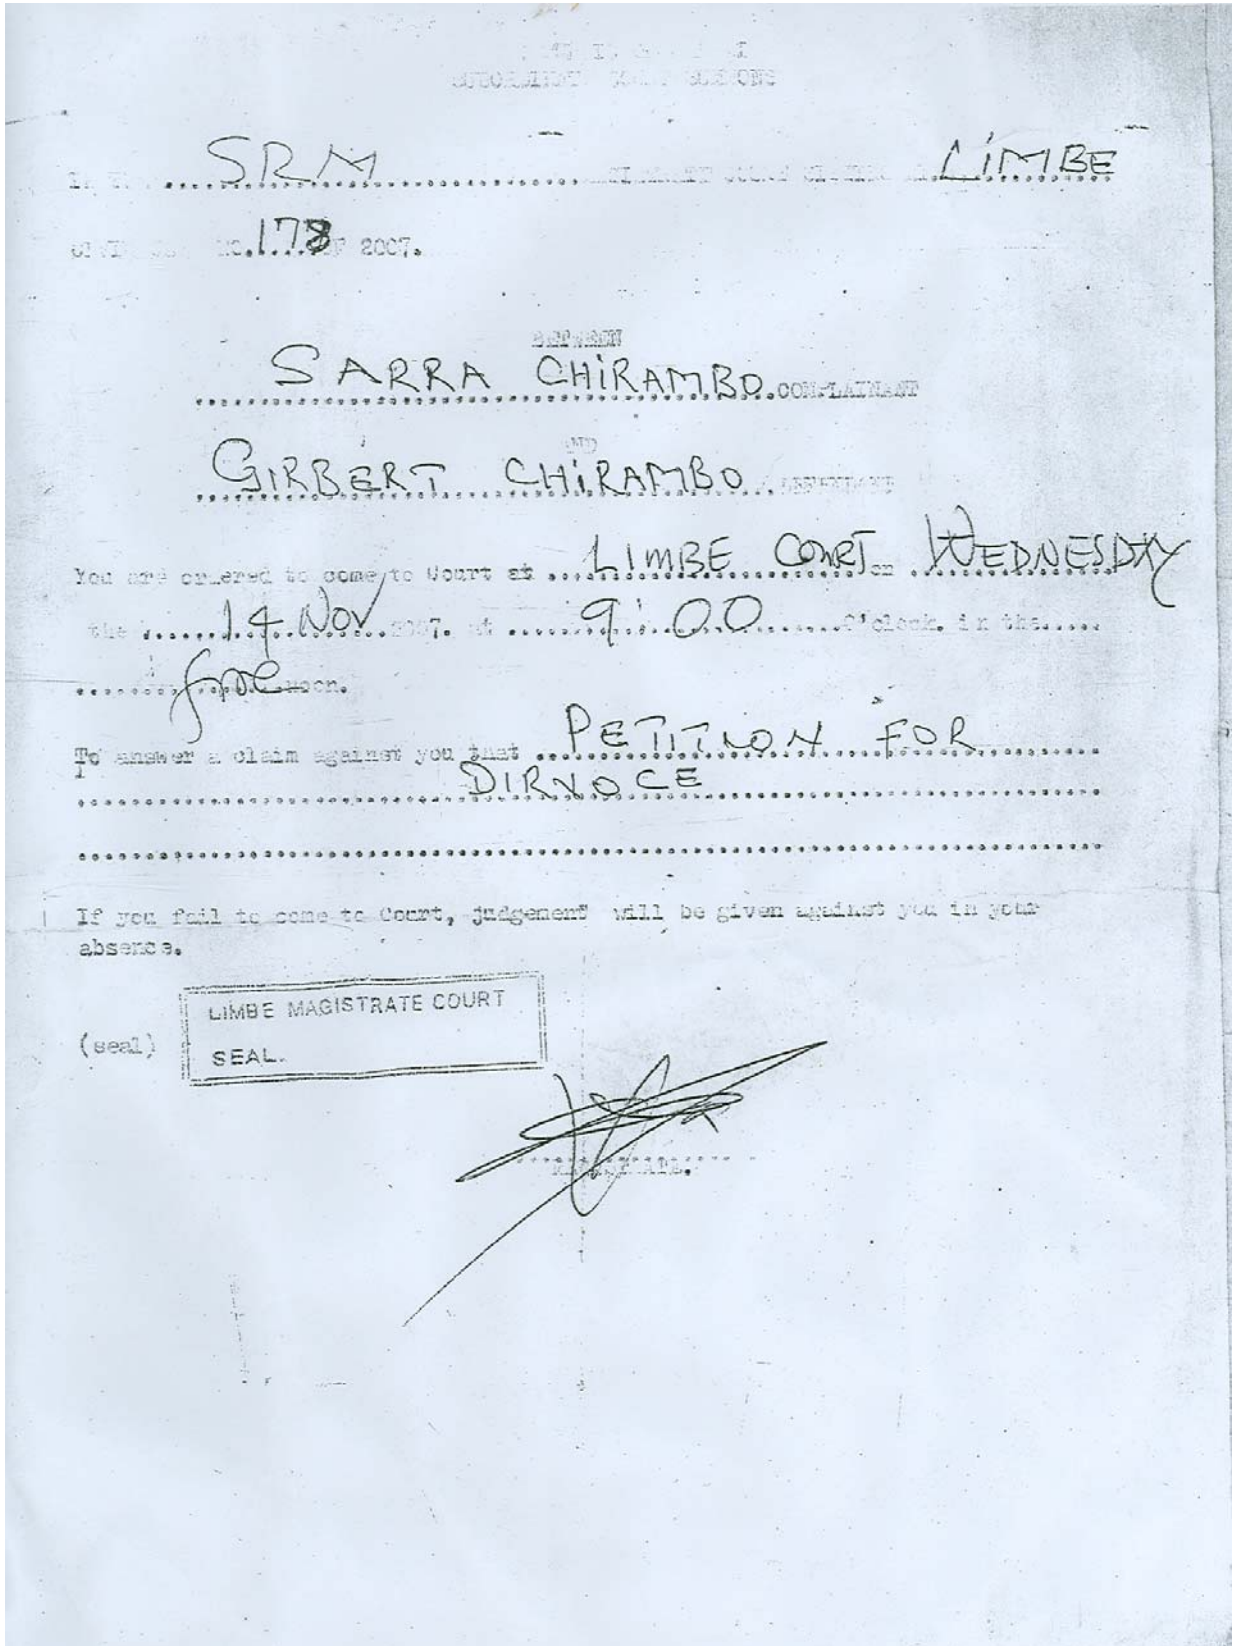 SRM LIMBE
NO. 178 OF 2007.
BETWEEN
SARRA CHIRAMBO COMPLAINANT
AND
GIRBERT CHIRAMBO DEFENDANT
You are ordered to come to Court at LIMBE COURT on WEDNESDAY
the 14 NOV 2007. at 9:00 O'clock. in the
fore noon.
To answer a claim against you that PETITION FOR
DIRVOCE
If you fail to come to Court, judgement will be given against you in your
absence.
LIMBE MAGISTRATE COURT
(seal) SEAL.
MAGISTRATE.